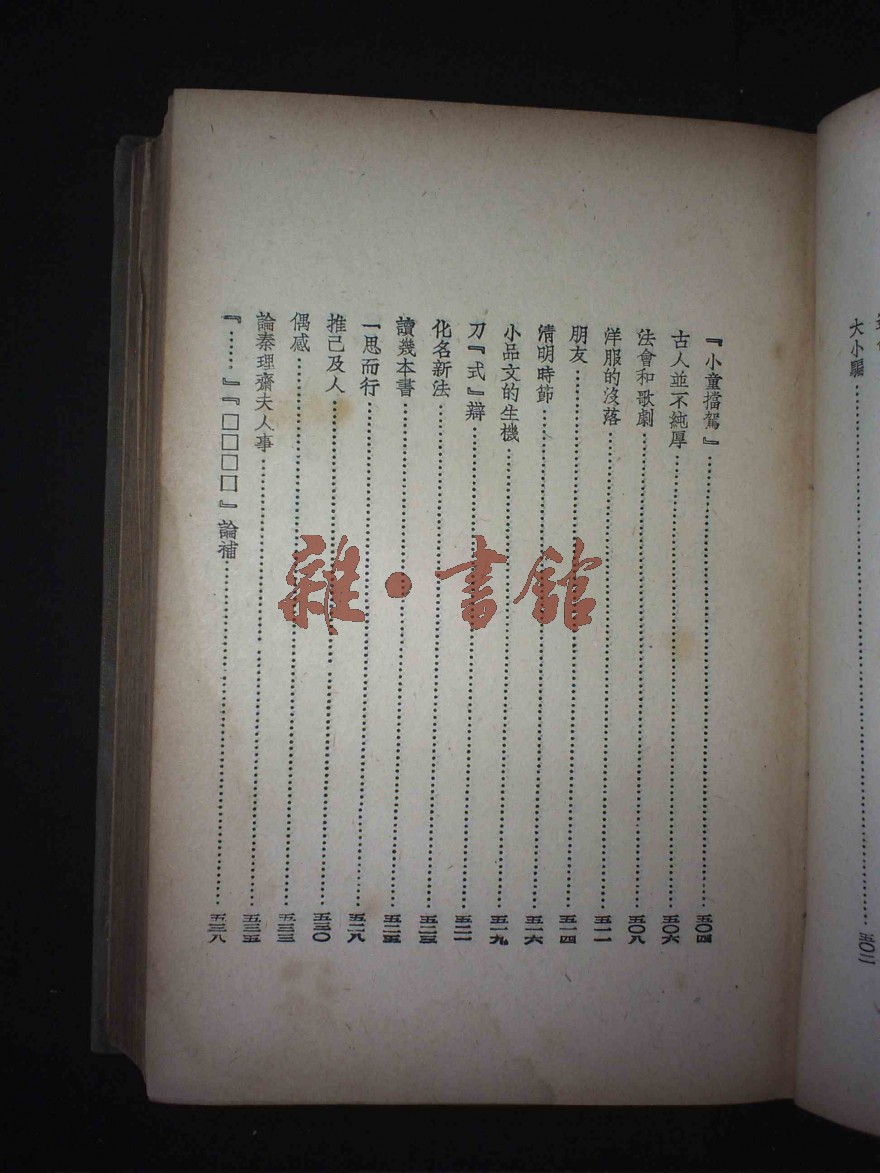 大小騙……五〇二
『小童擋駕』……五〇四
古人並不純厚……五〇六
法會和歌劇……五〇八
洋服的沒落……五一一
朋友……五一四
清明時節……五一六
小品文的生機……五一九
刀『式』辯……五二一
化名新法……五二三
讀幾本書……五二五
一思而行……五二八
推己及人……五三〇
偶感……五三三
論秦理齋夫人事……五三五
『……』『□□□□』論補……五三八
雜·書館